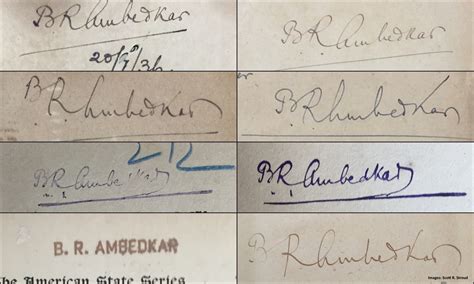 B. R. Ambedkar
20/9/36
B. R. Ambedkar
B. R. Ambedkar
B. R. Ambedkar
212
B. R. Ambedkar
B. R. Ambedkar
B. R. AMBEDKAR
The American State Series
B. R. Ambedkar
Images: Scott R. Stroud